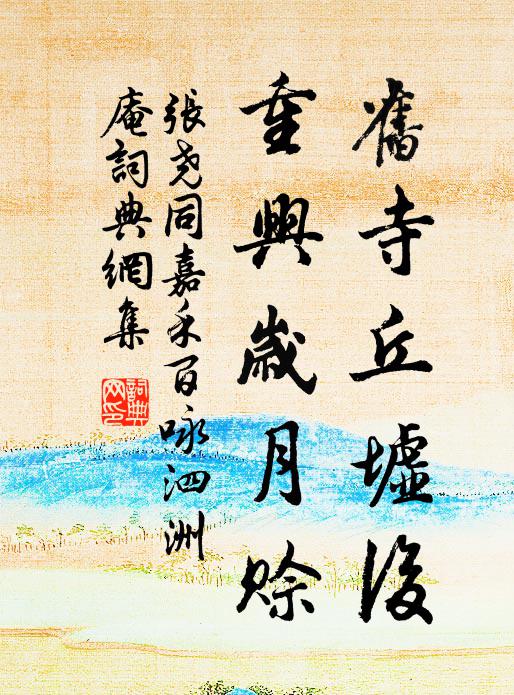 舊寺丘墟後
重興歲月賒
張堯同嘉禾百咏泗洲
庵詞典網集
詞典
网印